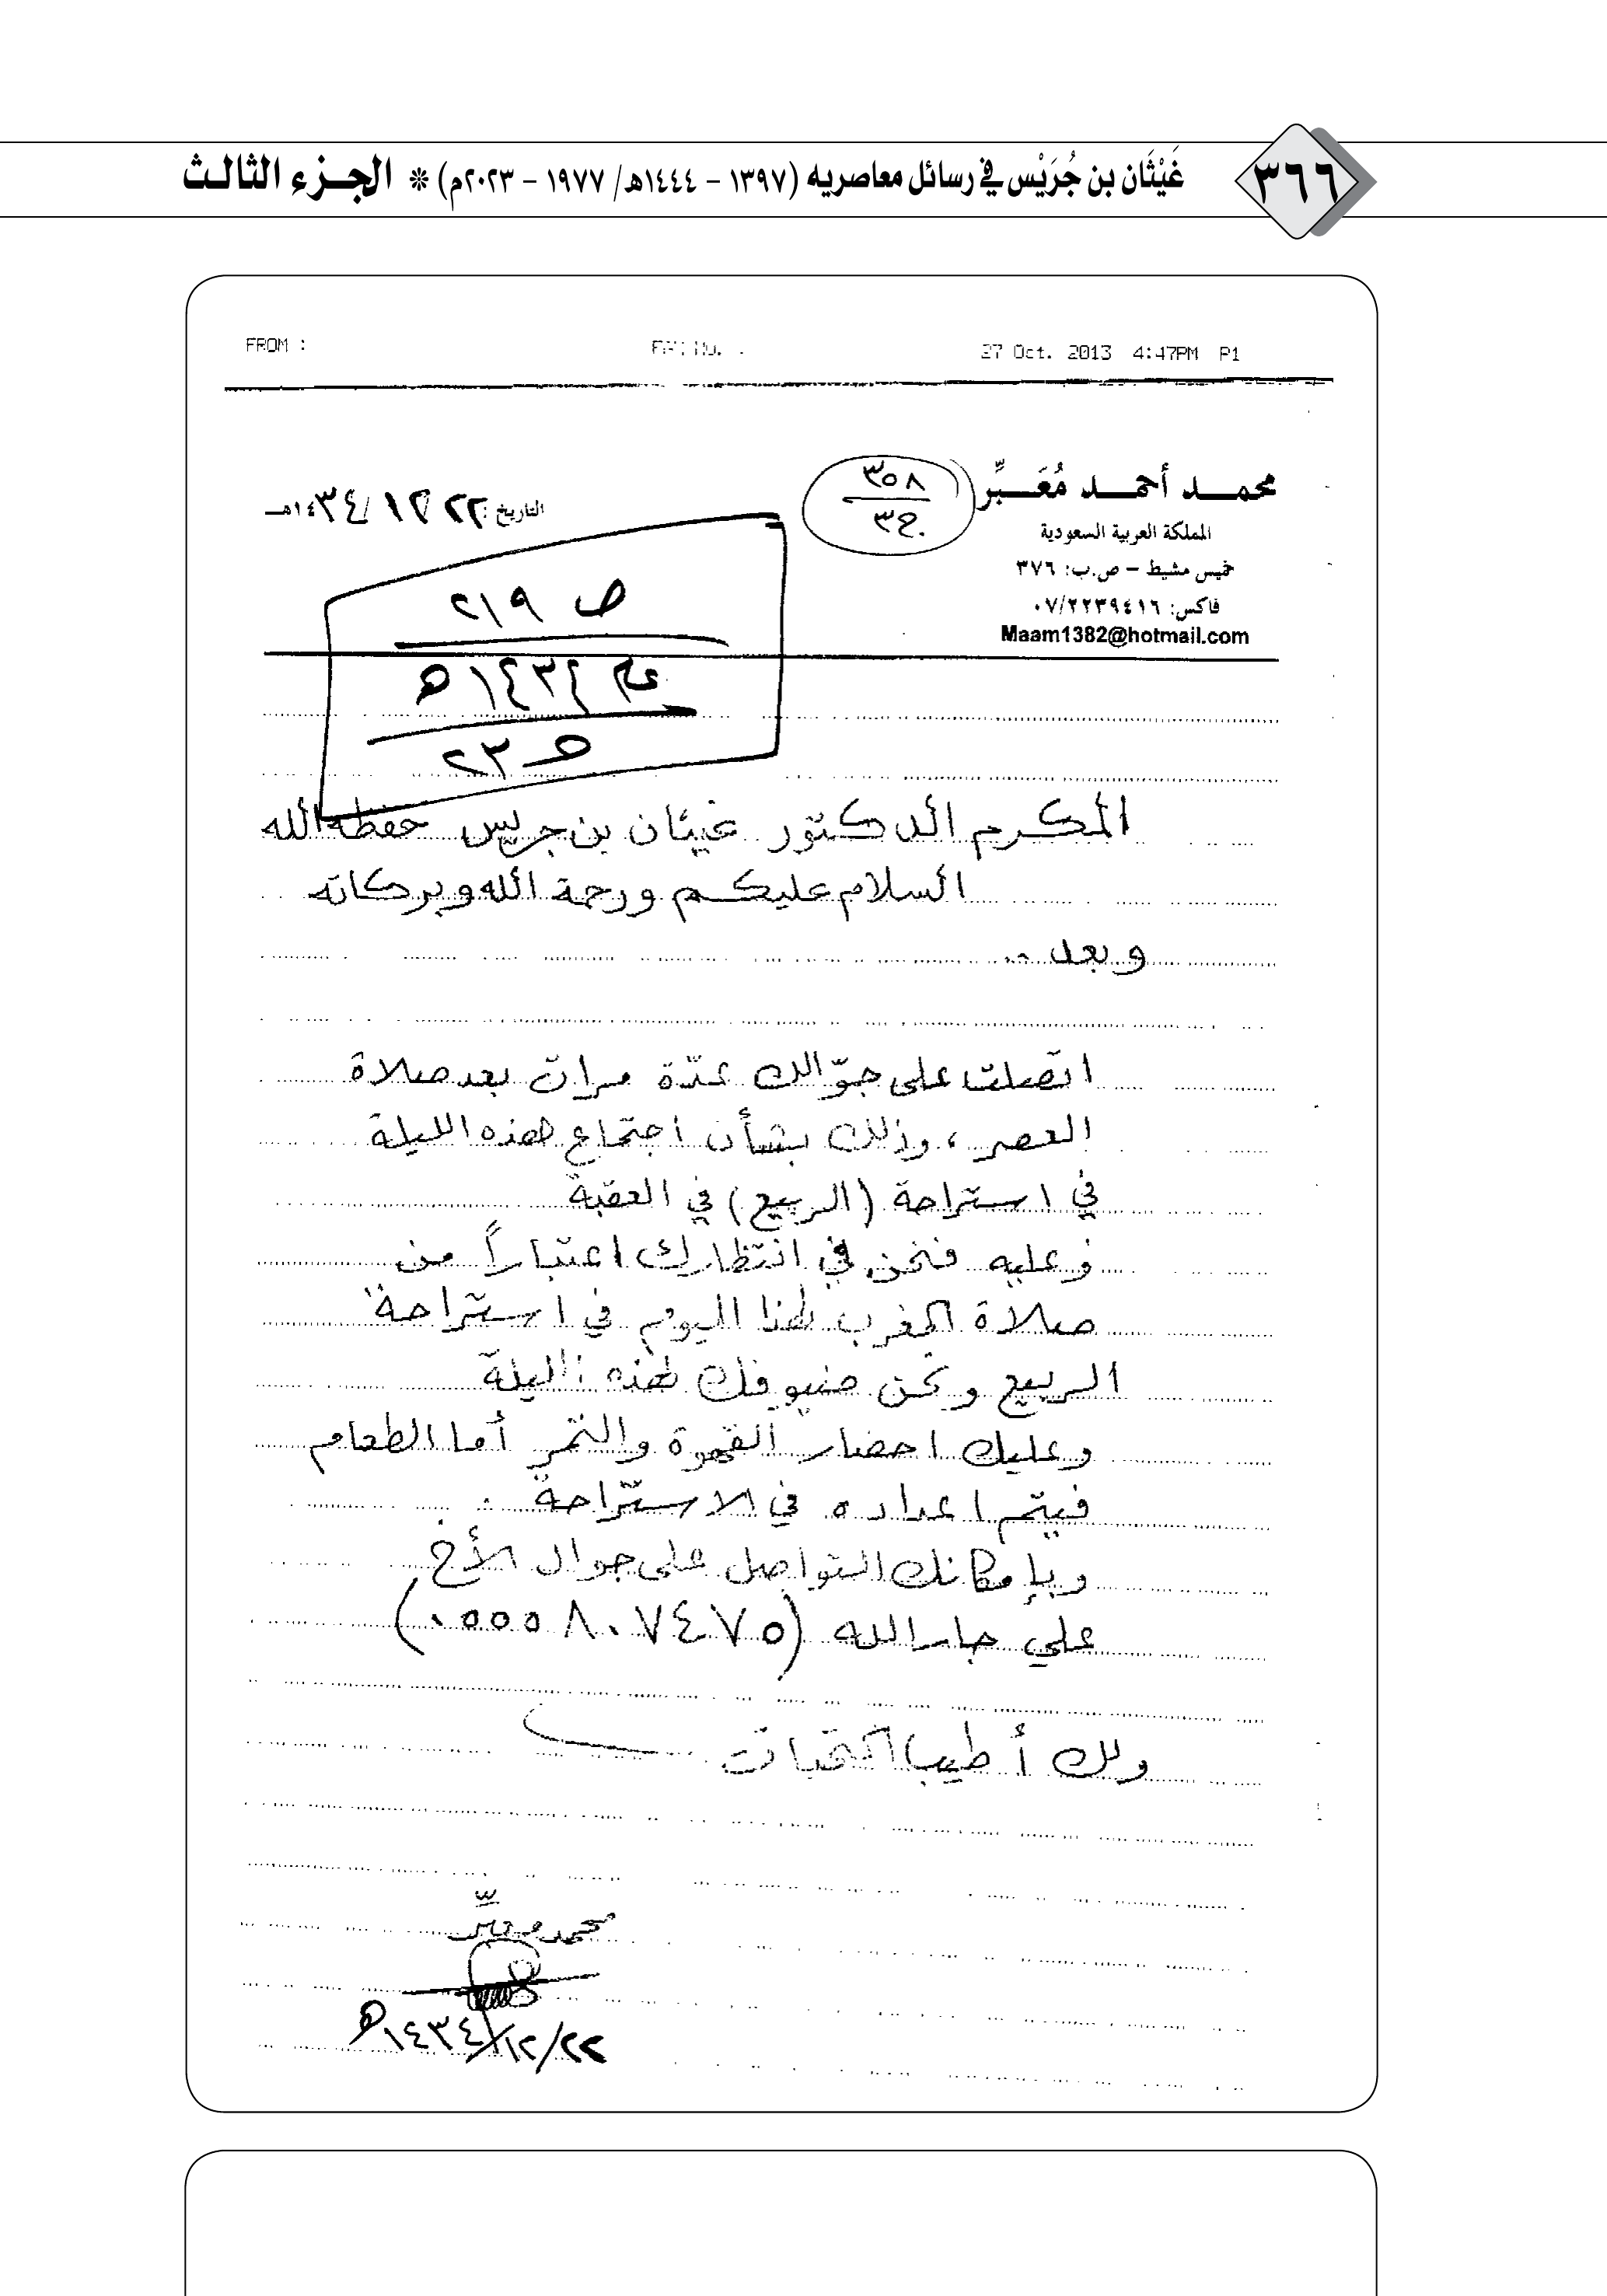 ٣٦٦
غَيْثَان بن جُرَيْس في رسائل معاصريه (١٣٩٧ – ١٤٤٤هـ/ ١٩٧٧ – ٢٠٢٣م) * الجـزء الثالـث
FROM :
27 Oct. 2013 4:47PM P1
محمـــد أحمـــد مُعَـــبِّر
المملكة العربية السعودية
خميس مشيط – ص.ب: ٣٧٦
فاكس: ٠٧/٢٢٣٩٤١٦
Maam1382@hotmail.com
٣٥٨
التاريخ: ٢٢/ ١٢/ ١٤٣٤هـ
ص ٢١٩
عام ١٤٣٤ هـ
المكرم الدكتور غيثان بن جريس حفظه الله
السلام عليكم ورحمة الله وبركاته
وبعد ..
اتّصلت على جوّالك عدّة مرات بعد صلاة
العصر ، وذلك بشأن اجتماع هذه الليلة
في استراحة (الربيع) في العقبة
وعليه فنحن في انتظارك اعتباراً من
صلاة المغرب هذا اليوم في استراحة
الربيع ونحن ضيوفك هذه الليلة
وعليك احضار القهوة والتمر أما الطعام
فيتم اعداده في الاستراحة .
وبإمكانك التواصل على جوال الأخ
علي جارالله (٠٥٥٥٨٠٧٤٧٥)
ولك أطيب التحيات
محمد معبّر
٢٢/١٢/١٤٣٤هـ